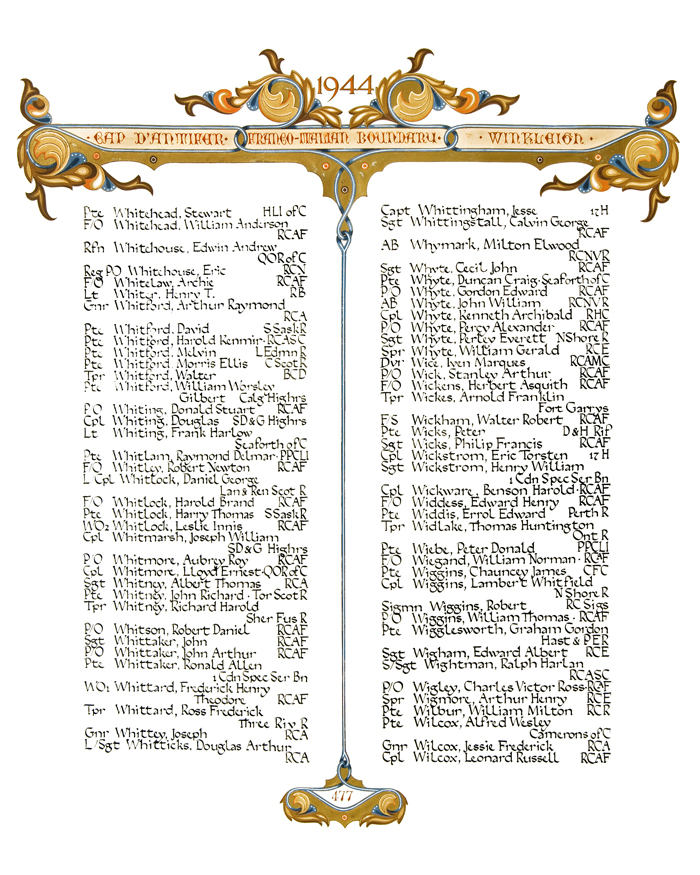 1944
· CAP D'ANTIFER · FRANCO-ITALIAN BOUNDARY · · WINKLEIGH ·
Pte Whitehead, Stewart HLI of C
F/O Whitehead, William Anderson
RCAF
Rfn Whitehouse, Edwin Andrew
QOR of C
Reg PO Whitehouse, Eric RCN
F/O Whitelaw, Archie RCAF
Lt Whiter, Henry T. RB
Gnr Whitford, Arthur Raymond
RCA
Pte Whitford, David S Sask R
Pte Whitford, Harold Kenmir · RCASC
Pte Whitford, Melvin L Edmn R
Pte Whitford, Morris Ellis C Scot R
Tpr Whitford, Walter BCD
Pte Whitford, William Worsley
Gilbert Calg Highrs
P/O Whiting, Donald Stuart RCAF
Cpl Whiting, Douglas SD&G Highrs
Lt Whiting, Frank Harlow
Seaforth of C
Pte Whitlam, Raymond Delmar · PPCLI
F/O Whitley, Robert Newton RCAF
L/Cpl Whitlock, Daniel George
Lan & Ren Scot R
F/O Whitlock, Harold Brand RCAF
Pte Whitlock, Harry Thomas S Sask R
WO2 Whitlock, Leslie Innis RCAF
Cpl Whitmarsh, Joseph William
SD&G Highrs
P/O Whitmore, Aubrey Roy RCAF
Cpl Whitmore, Lloyd Ernest · QOR of C
Sgt Whitney, Albert Thomas RCA
Pte Whitney, John Richard · Tor Scot R
Tpr Whitney, Richard Harold
Sher Fus R
P/O Whitson, Robert Daniel RCAF
Sgt Whittaker, John RCAF
P/O Whittaker, John Arthur RCAF
Pte Whittaker, Ronald Allen
1 Cdn Spec Ser Bn
WO1 Whittard, Frederick Henry
Theodore RCAF
Tpr Whittard, Ross Frederick
Three Riv R
Gnr Whittey, Joseph RCA
L/Sgt Whitticks, Douglas Arthur
RCA
Capt Whittingham, Jesse 17 H
Sgt Whittingstall, Calvin George
RCAF
AB Whymark, Milton Elwood
RCNVR
Sgt Whyte, Cecil John RCAF
Pte Whyte, Duncan Craig · Seaforth of C
P/O Whyte, Gordon Edward RCAF
AB Whyte, John William RCNVR
Cpl Whyte, Kenneth Archibald RHC
P/O Whyte, Percy Alexander RCAF
Sgt Whyte, Perley Everett N Shore R
Spr Whyte, William Gerald RCE
Dvr Wice, Iven Marques RCAMC
P/O Wick, Stanley Arthur RCAF
F/O Wickens, Herbert Asquith RCAF
Tpr Wickes, Arnold Franklin
Fort Garrys
F/S Wickham, Walter Robert RCAF
Pte Wicks, Peter D&H Rif
Sgt Wicks, Philip Francis RCAF
Cpl Wickstrom, Eric Torsten 17 H
Sgt Wickstrom, Henry William
1 Cdn Spec Ser Bn
Cpl Wickware, Benson Harold · RCAF
F/O Widdess, Edward Henry RCAF
Pte Widdis, Errol Edward Perth R
Tpr Widlake, Thomas Huntington
Ont R
Pte Wiebe, Peter Donald PPCLI
F/O Wiegand, William Norman · RCAF
Pte Wiggins, Chauncey James CFC
Cpl Wiggins, Lambert Whitfield
N Shore R
Sigmn Wiggins, Robert RC Sigs
P/O Wiggins, William Thomas · RCAF
Pte Wigglesworth, Graham Gordon
Hast & PER
Sgt Wigham, Edward Albert RCE
S/Sgt Wightman, Ralph Harlan
RCASC
P/O Wigley, Charles Victor Ross · RCAF
Spr Wigmore, Arthur Henry RCE
Pte Wilbur, William Milton RCR
Pte Wilcox, Alfred Wesley
Camerons of C
Gnr Wilcox, Jessie Frederick RCA
Cpl Wilcox, Leonard Russell RCAF
477